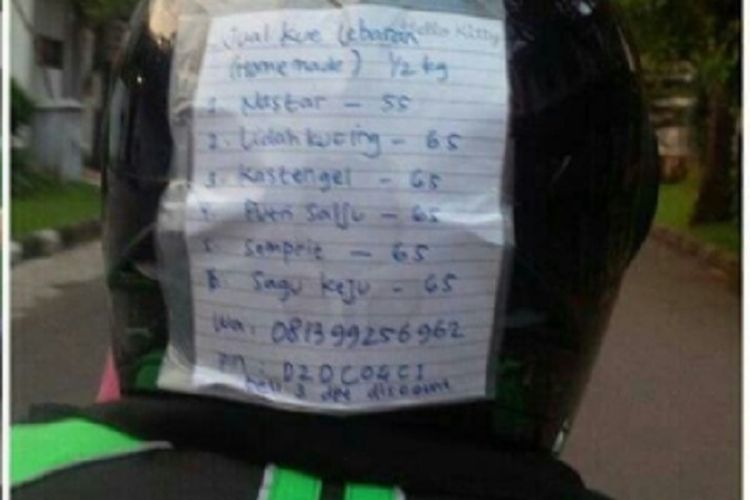 Jual Kue Lebaran
Hello Kitty
(Home made) 1/2 kg
1. Nastar - 55
2. Lidah kucing - 65
3. Kastengel - 65
4. Putri Salju - 65
5. Semprit - 65
6. Sagu keju - 65
Wa: 081399256962
D2DC04C1
beli 3 dpt discount